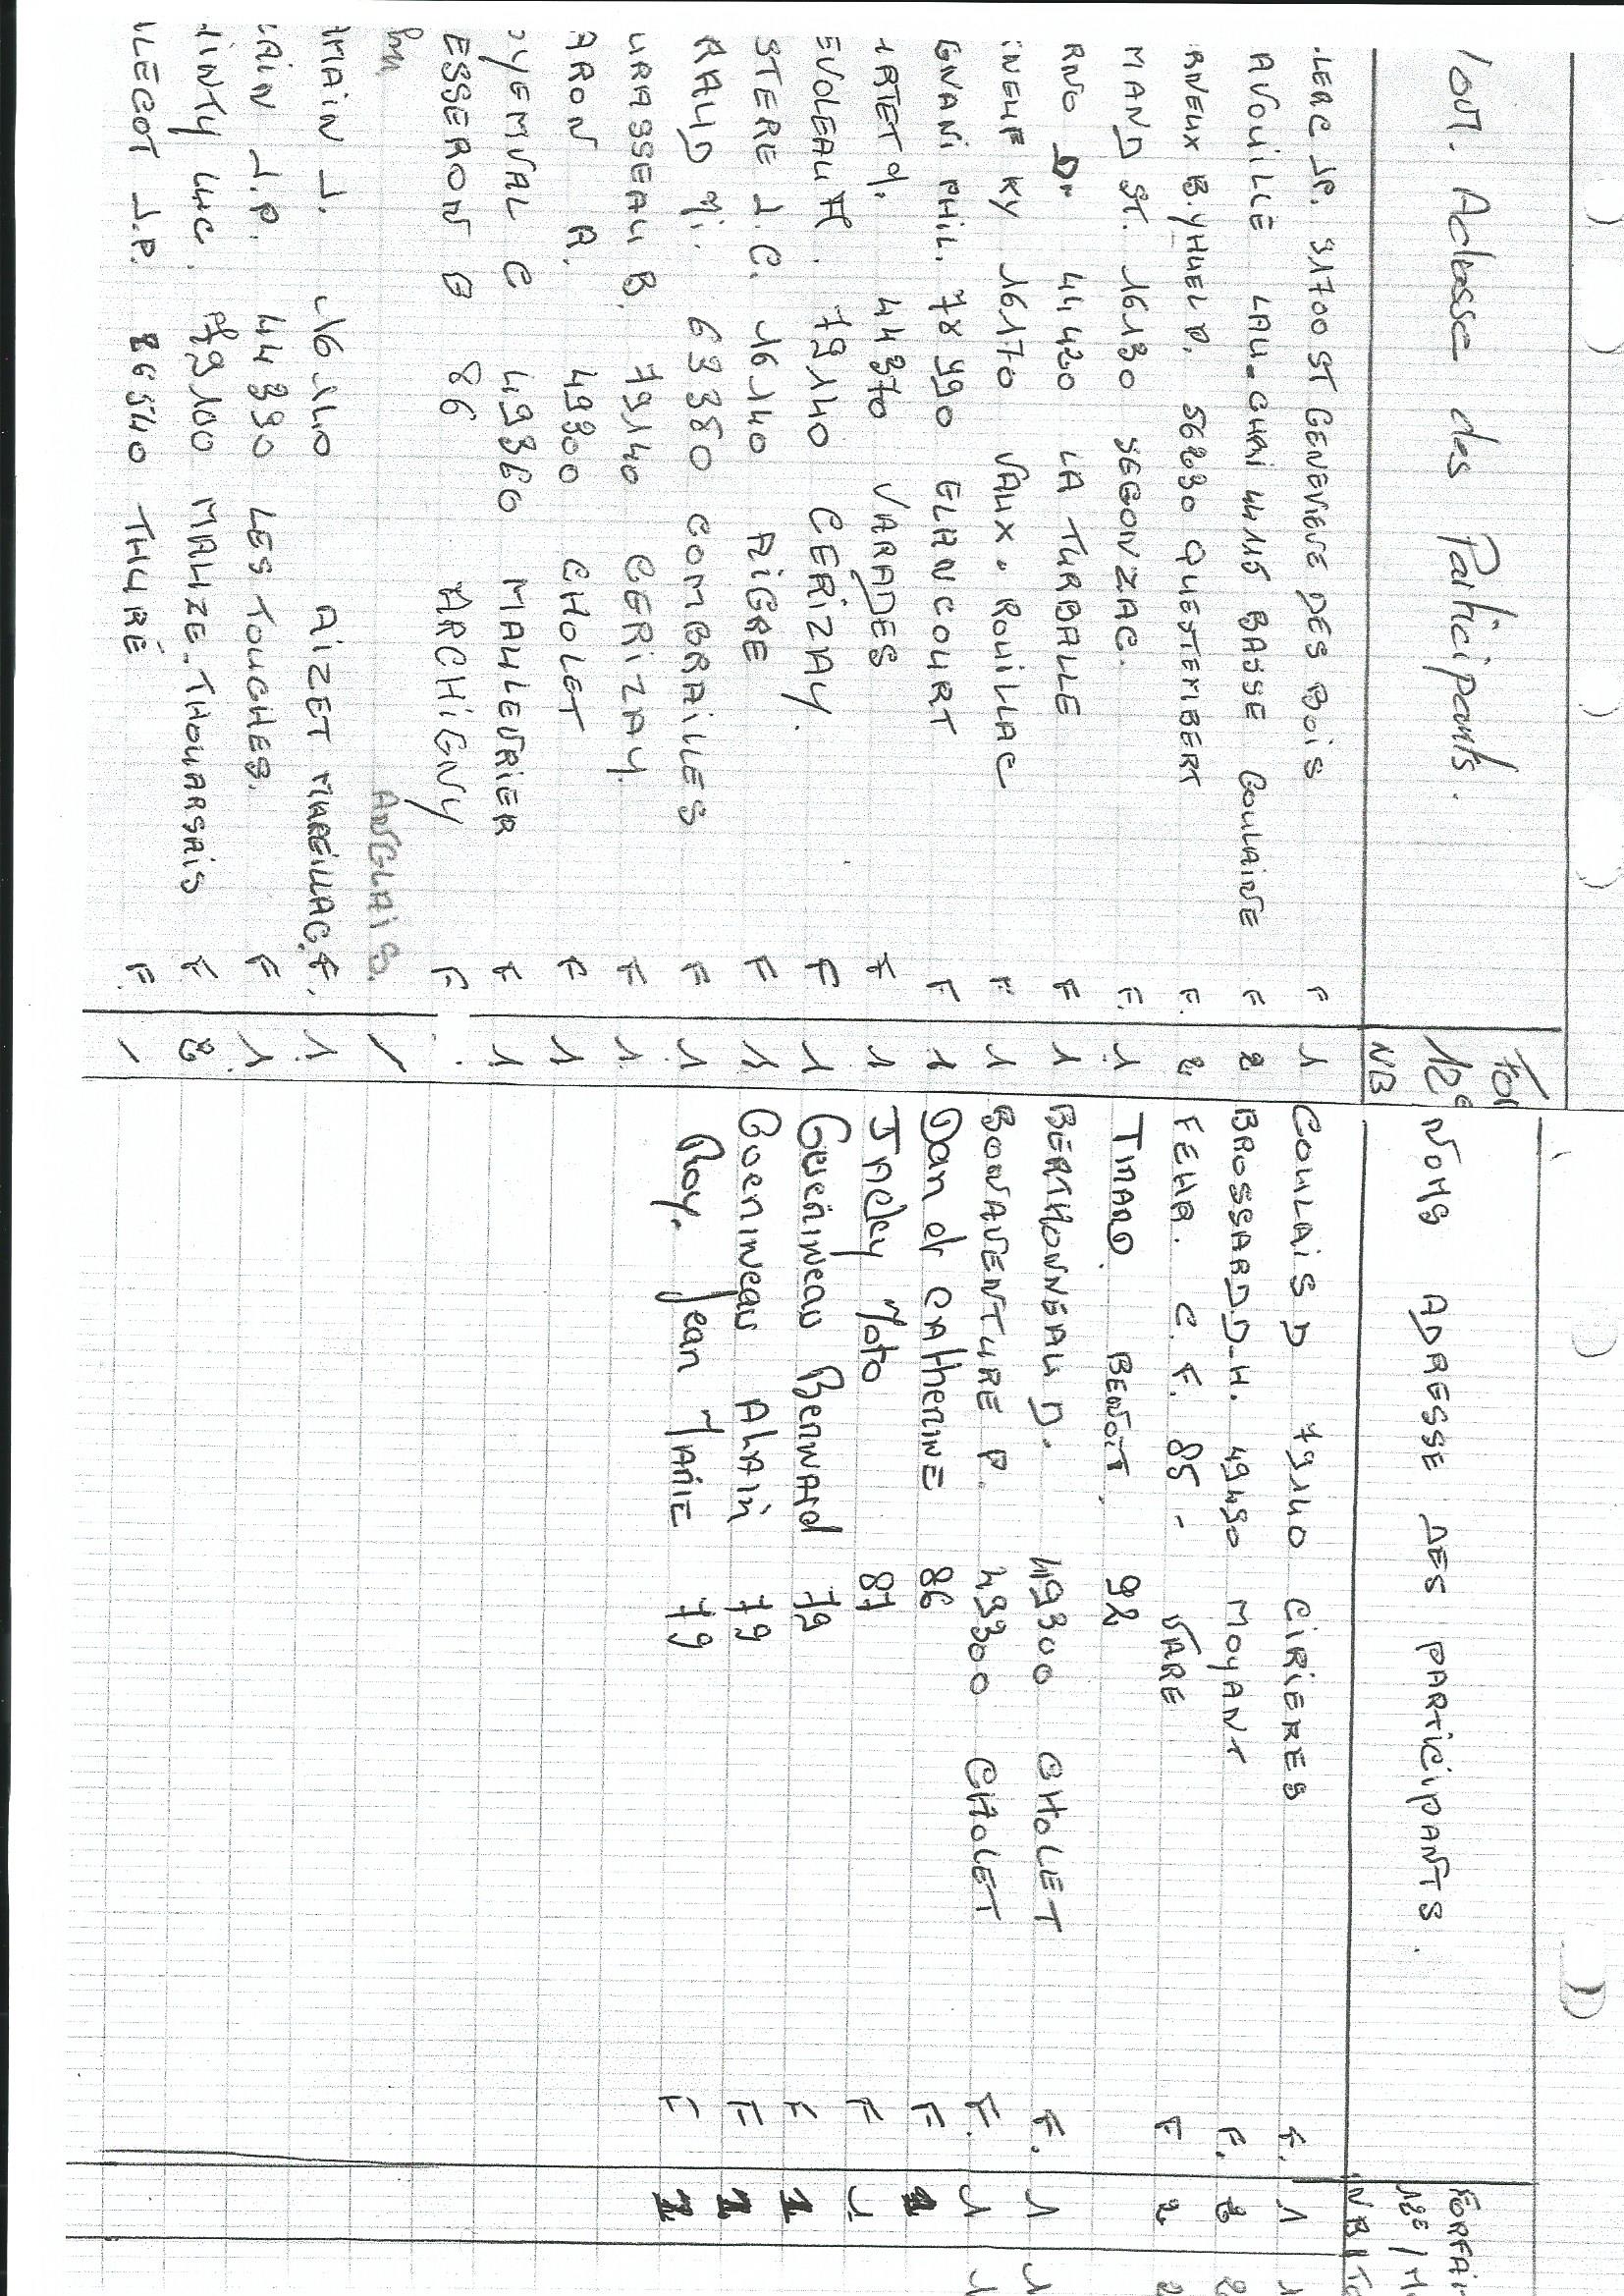 Adresse des Participants.
12€
NB
LERC JP. 91700 ST GENEVIEVE DES BOIS F 1
AVOUILLÉ BASSE GOULAINE F 2
RNEUX B. YHUEL P. 56230 QUESTEMBERT F. 2
MAND ST. 16130 SEGONZAC. F. 1
RNO D. 44420 LA TURBALLE F 1
KY 16170 VAUX. ROUILLAC F 1
GNANI PHIL. 78990 ELANCOURT F 1
44370 VARADES F 1
EVOLEAU 79140 CERIZAY. F 1
STERE J.C. 16140 AIGRE F 1
RAUD Mi. 63380 COMBRAILLES F 1
URASSEAU B. 79140 CERIZAY. F 1
ARON A. 49300 CHOLET F 1
OYEMVAL C 49360 MAULEVRIER F 1
ESSERON G 86 ARCHIGNY F
ANGLAIS. 1
AMAIN J. 16140 AIZET MAREILLAC. F. 1
AIN J.P. 44390 LES TOUCHES. F 1
INTY LUC. 79100 MAUZE-THOUARSAIS F 2
LEGOT J.P. 86540 THURÉ F. 1
NOMS ADRESSE DES PARTICIPANTS.
FORFAI
12€ / H
NB
COULAIS D 79140 CIRIERES F. 1 1
BROSSARD.D-H. 49490 MOYANT F. 2 2
FEHR. C.F. 85 - VARE F 2 2
TINARD. BENOIT. 92
BERTHONNEAU D. 49300 CHOLET F. 1 1
BONAVENTURE P. 49300 CHOLET F. 1 1
Dan et CATHERINE 86 F
Jacky Moto 87 F 1
Guerineau Bernard 79 F 1
Goerineau Alain 79 F 1
Roy. Jean Marie 79 F 1